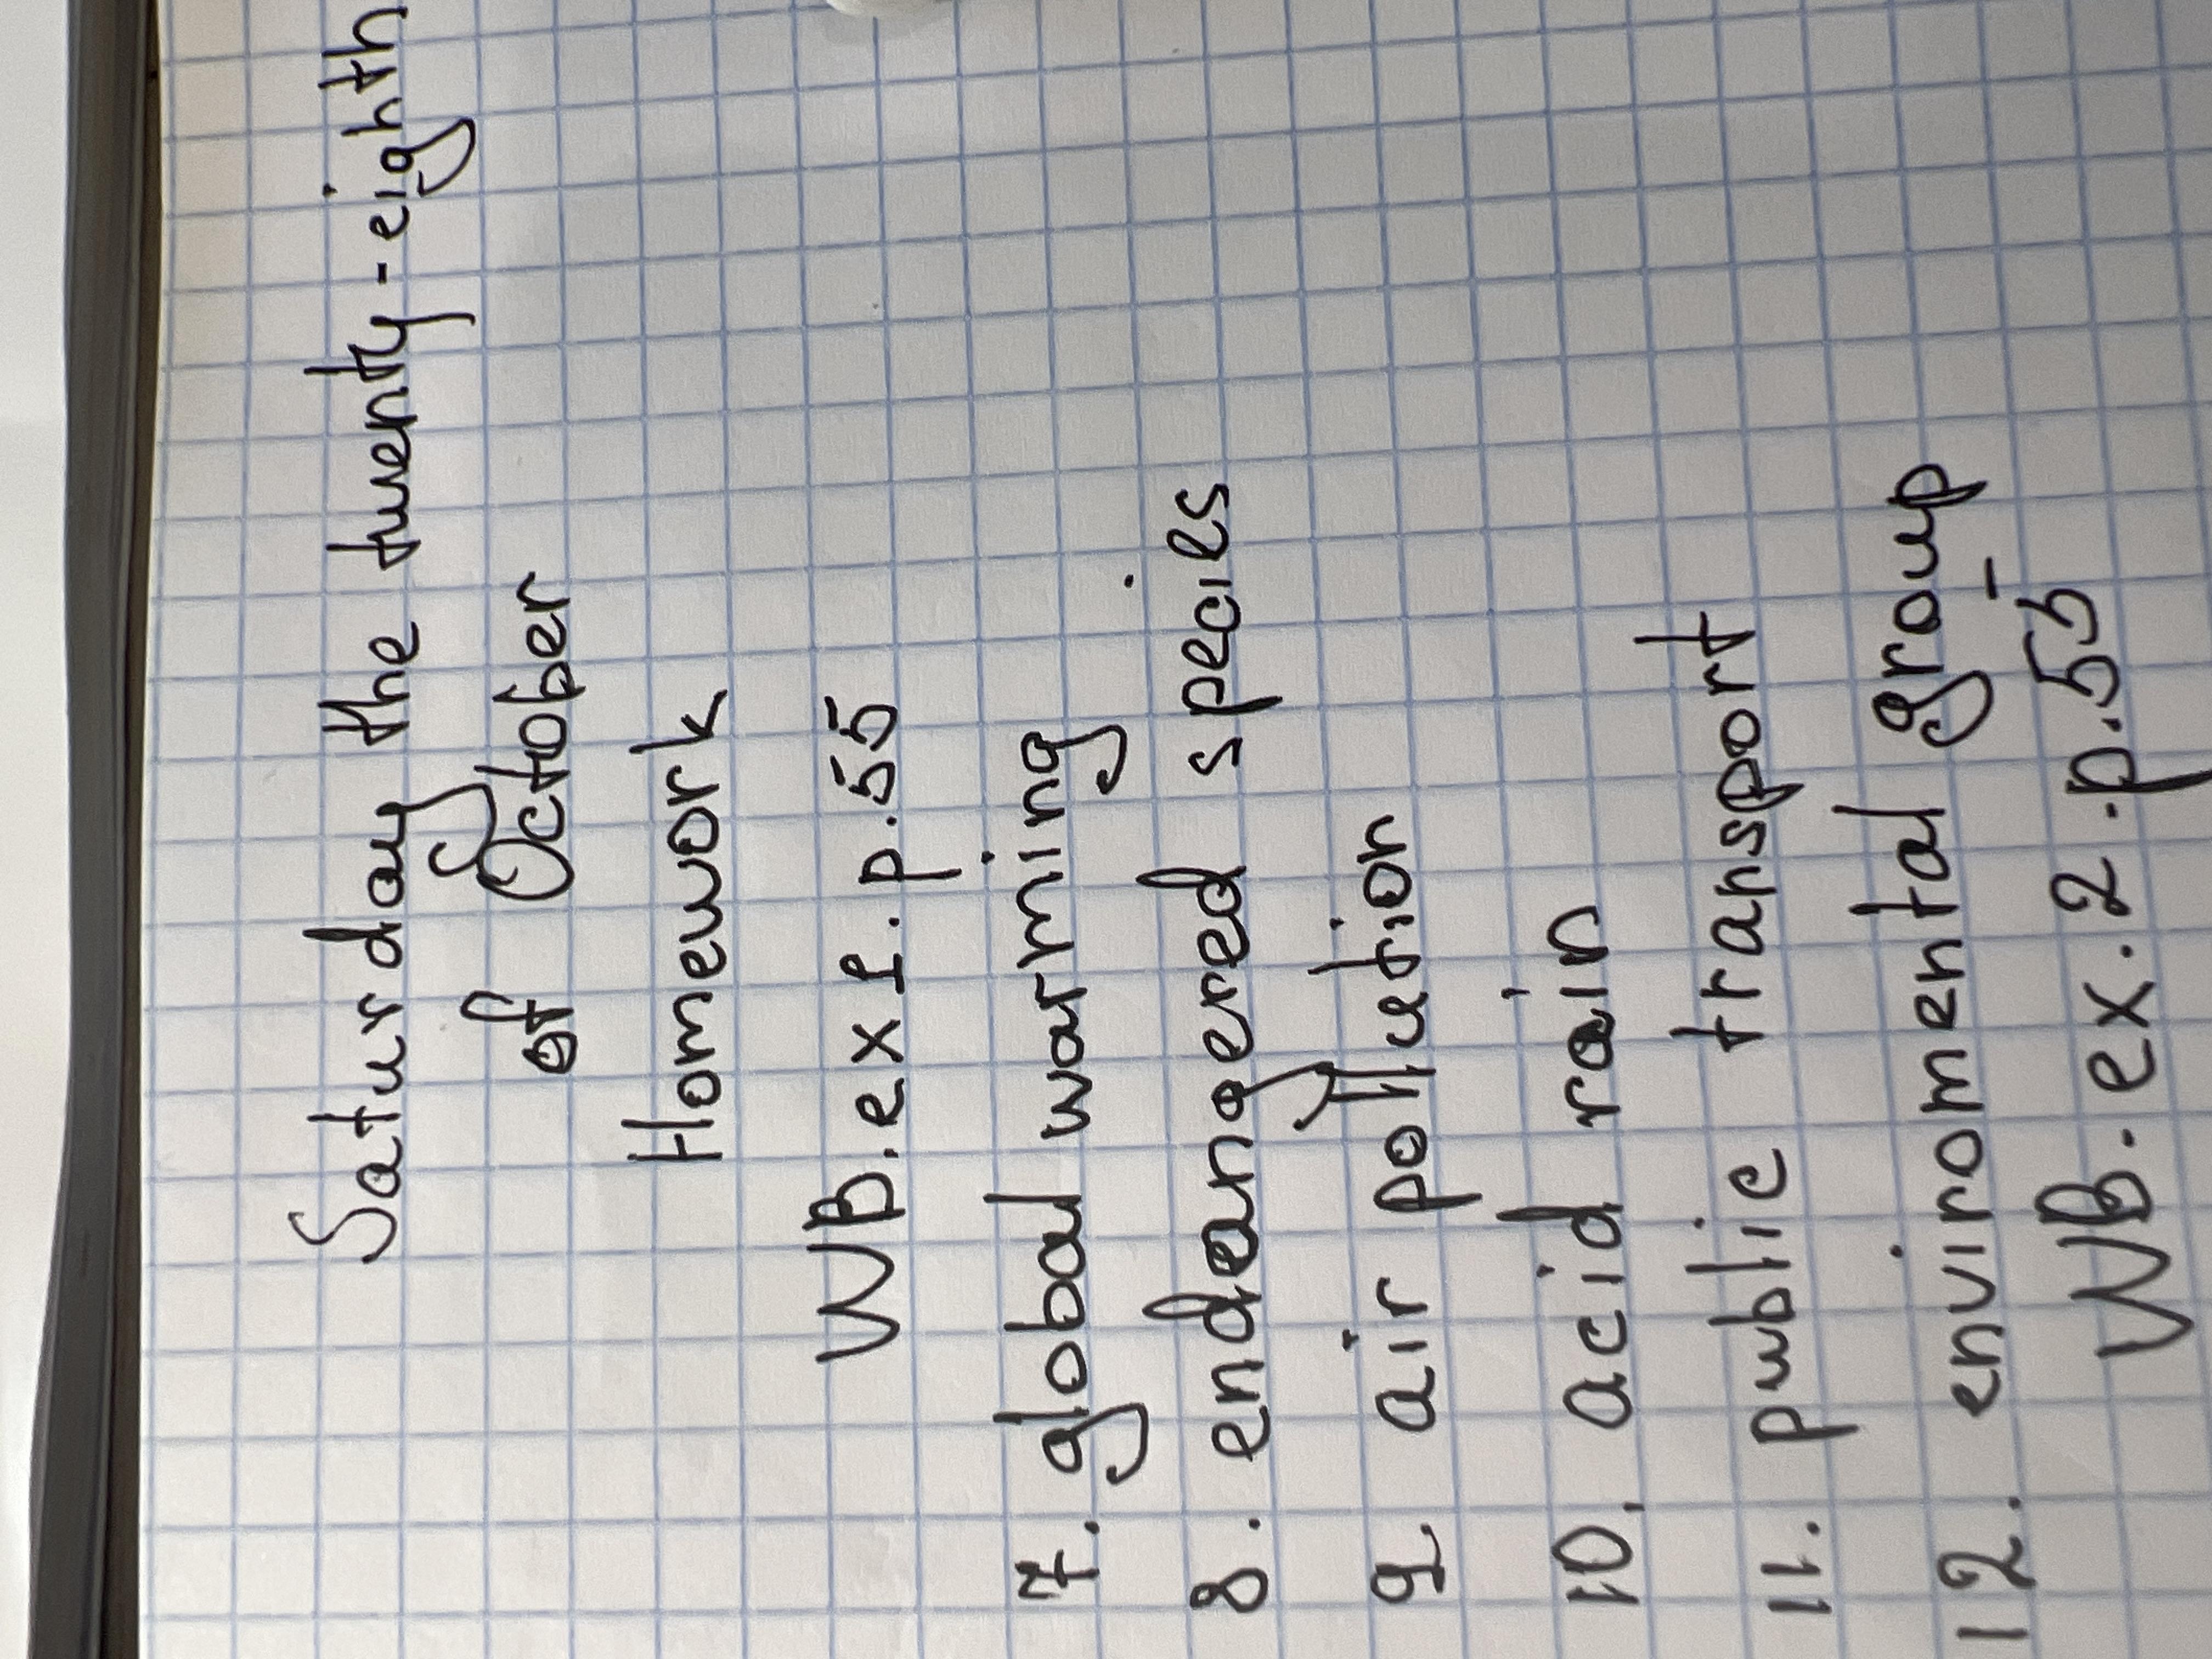 Saturday the twenty-eighth
of October
Homework
WB. ex 1. p. 55
7. global warming
8. endangered species
9. air pollution
10. acid rain
11. public transport
12. enviromental group
WB. ex. 2. p. 55